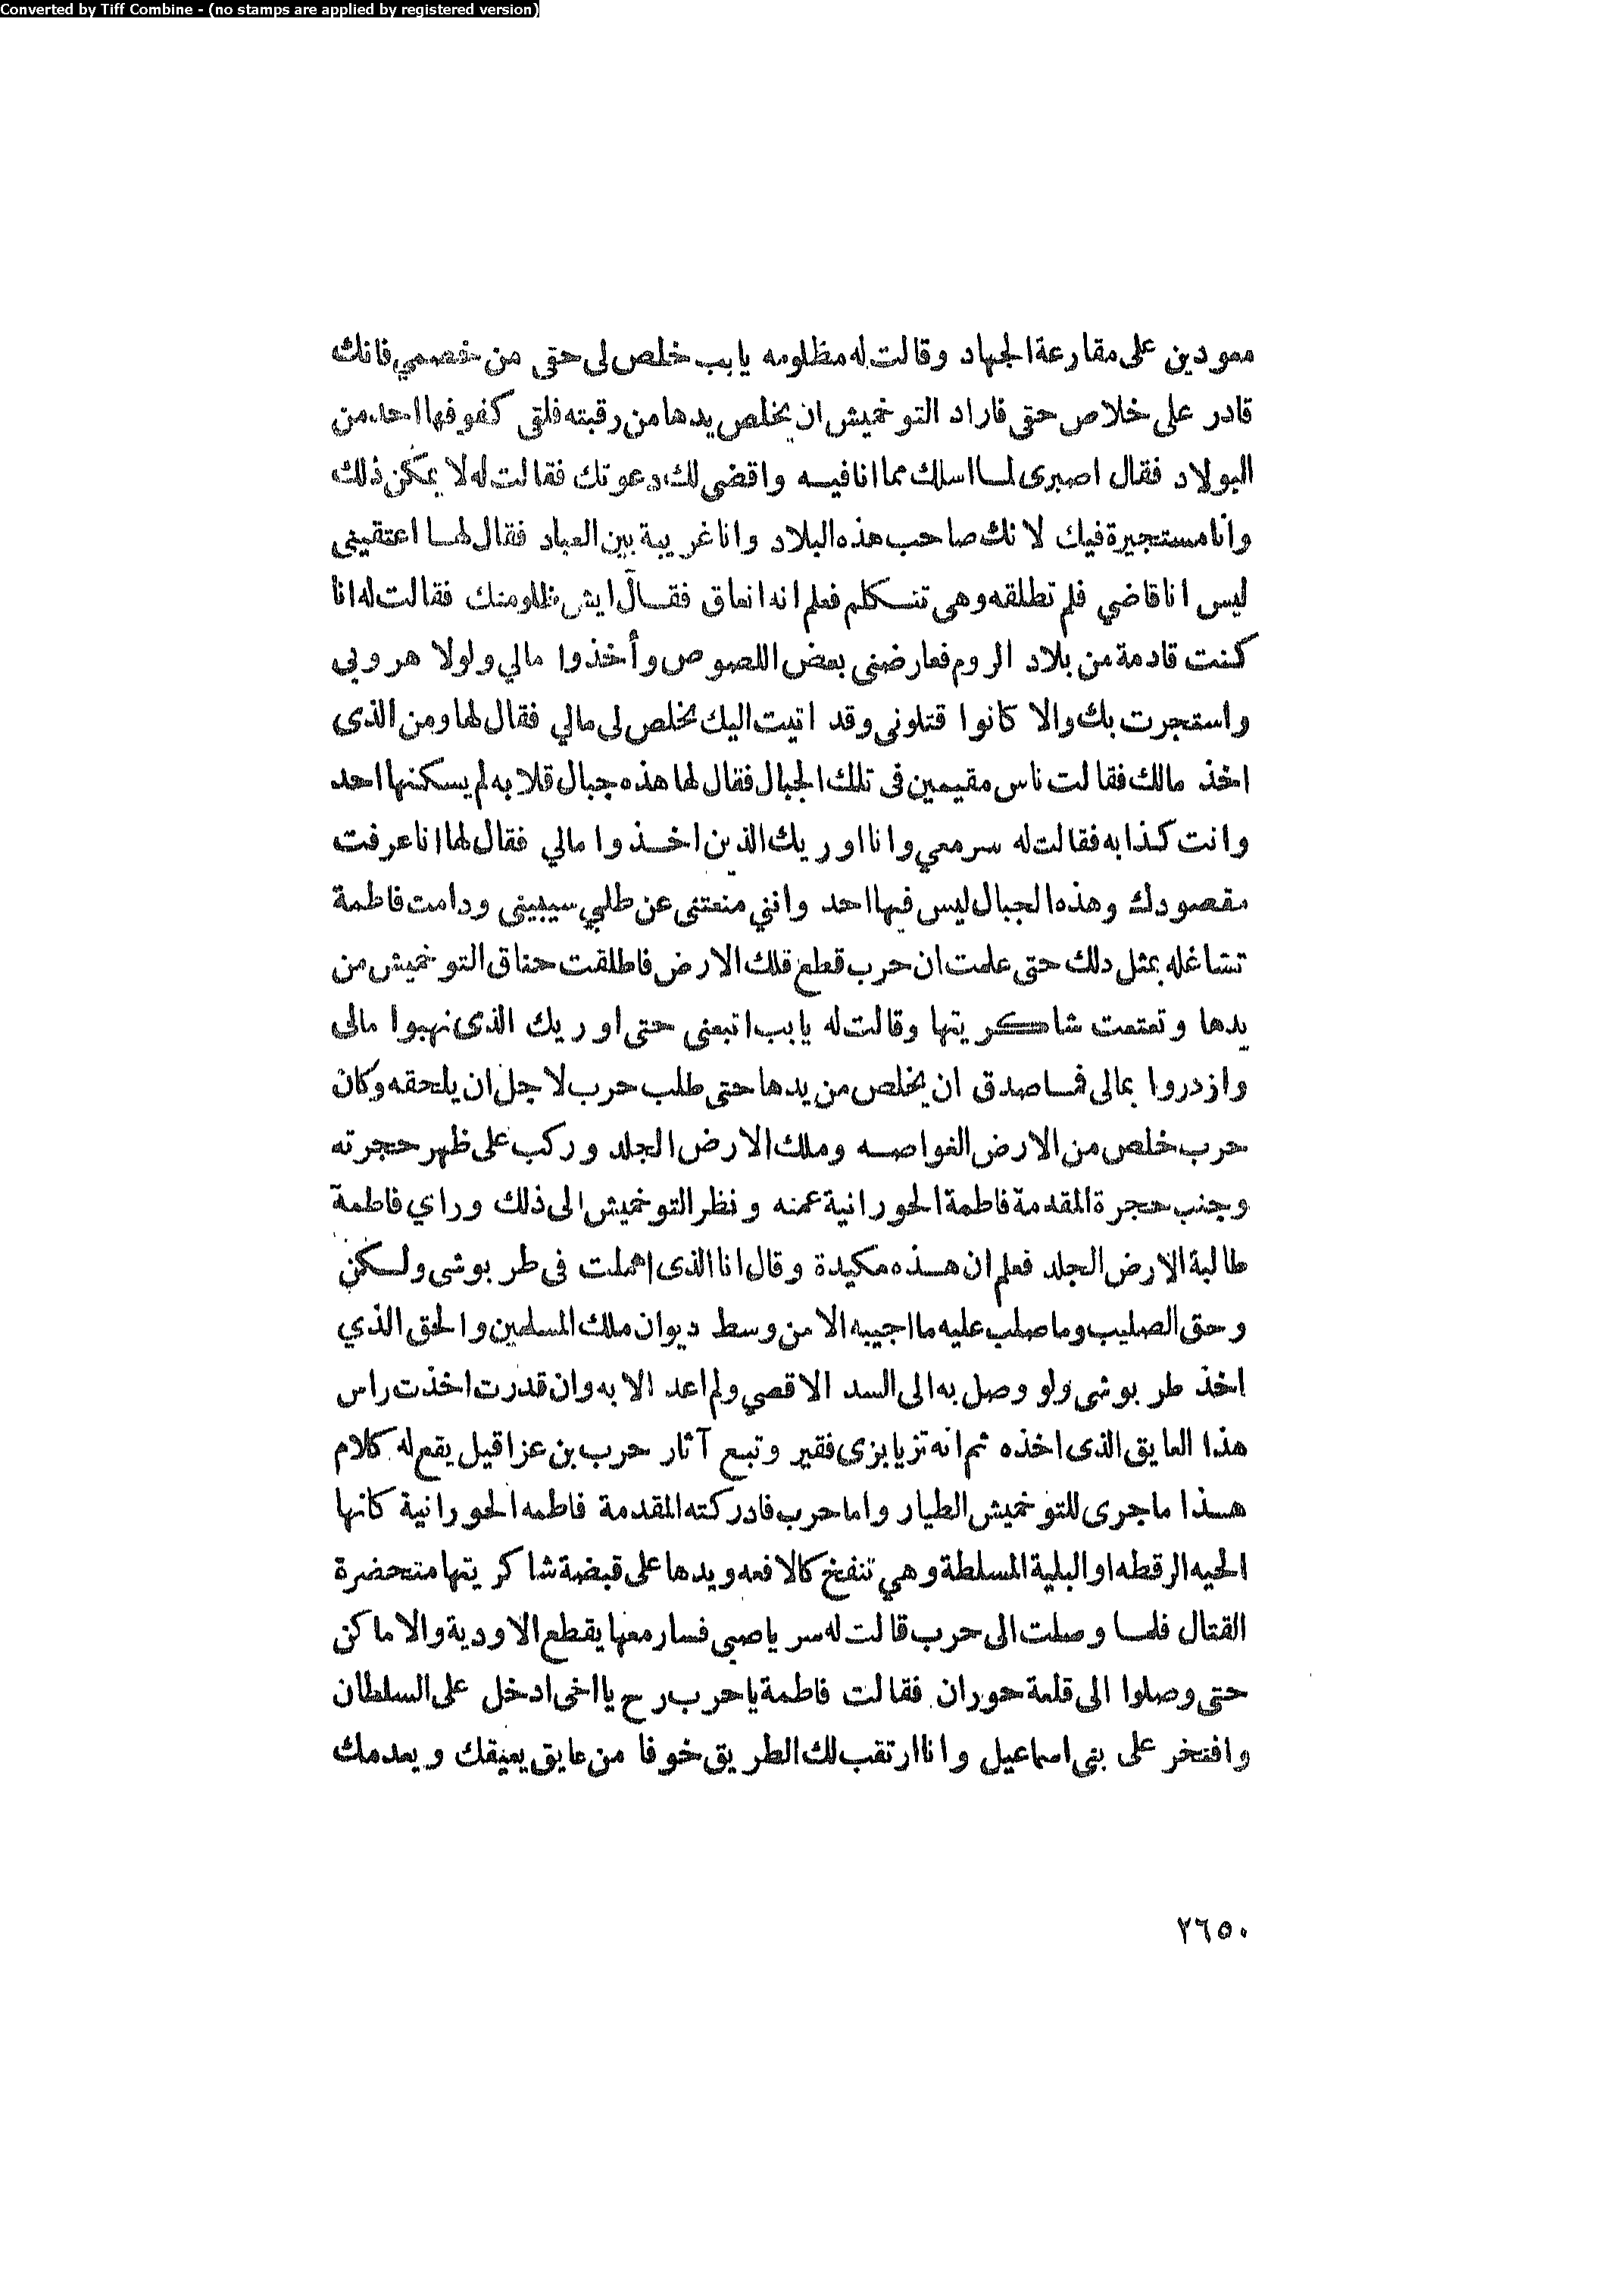 Converted by Tiff Combine - (no stamps are applied by registered version)
معودين على مقارعة الجهاد وقالت له مظلومه يابب خلص لى حقى من خصمي فانك
قادر على خلاص حقى فاراد التوخميش ان يخلص يدها من رقبته فلقى كفوفها احد من
البولاد فقال اصبرى لما اسلك مما انافيه واقضى لك دعوتك فقالت له لا يمكن ذلك
وانا مستجيرة فيك لانك صاحب هذه البلاد وانا غريبة بين العباد فقال لها اعتقينى
ليس انا قاضي فلم تطلقه وهى تتكلم فعلم انه انعاق فقال ايش ظلومتك فقالت له انا
كنت قادمة من بلاد الروم فعارضنى بعض اللصوص وأخذوا مالي ولولا هروبى
واستجرت بك والا كانوا قتلونى وقد اتيت اليك تخلص لى مالي فقال لها ومن الذى
اخذ مالك فقالت ناس مقيمين فى تلك الجبال فقال لها هذه جبال قلابه لم يسكنها احد
وانت كذابه فقالت له سر معي وانا اوريك الذين اخذوا مالي فقال لها انا عرفت
مقصودك وهذه الجبال ليس فيها احد وانني منعتنى عن طلبي سيبينى ودامت فاطمة
تشاغله بمثل دلك حتى علمت ان حرب قطع تلك الارض فاطلقت خناق التوخميش من
يدها وتمتمت شاكريتها وقالت له يابب اتبعنى حتى اوريك الذى نهبوا مالى
وازدروا بمالى فما صدق ان يخلص من يدها حتى طلب حرب لاجل ان يلحقه وكان
حرب خلص من الارض الغواصه وملك الارض الجلد وركب على ظهر حجرته
وجنب حجرة المقدمة فاطمة الحورانية عمنه ونظر التوخميش الى ذلك وراي فاطمة
طالبة الارض الجلد فعلم ان هذه مكيدة وقال انا الذى اهملت فى طربوشى ولكن
وحق الصليب وما صلب عليه ما اجيبه الا من وسط ديوان ملك المسلمين والحق الذي
اخذ طربوشى ولو وصل به الى السد الاقصي ولم اعد الا به وان قدرت اخذت راس
هذا العايق الذى اخذه ثم انه تزيا بزى فقير وتبع آثار حرب بن عزاقيل يقع له كلام
هذا ماجرى للتوخميش الطيار واما حرب فادركته المقدمة فاطمه الحورانية كانها
الحيه الرقطه او البلية المسلطة وهي تنفخ كالافعه ويدها على قبضة شاكريتها متحضرة
القتال فلما وصلت الى حرب قالت له سر ياصبى فسار معها يقطع الاودية والاماكن
حتى وصلوا الى قلعة حوران فقالت فاطمة ياحرب رح يااخى ادخل على السلطان
وافتخر على بنى اسماعيل وانا ارتقب لك الطريق خوفا من عايق يعيقك ويعدمك
٢٦٥٠